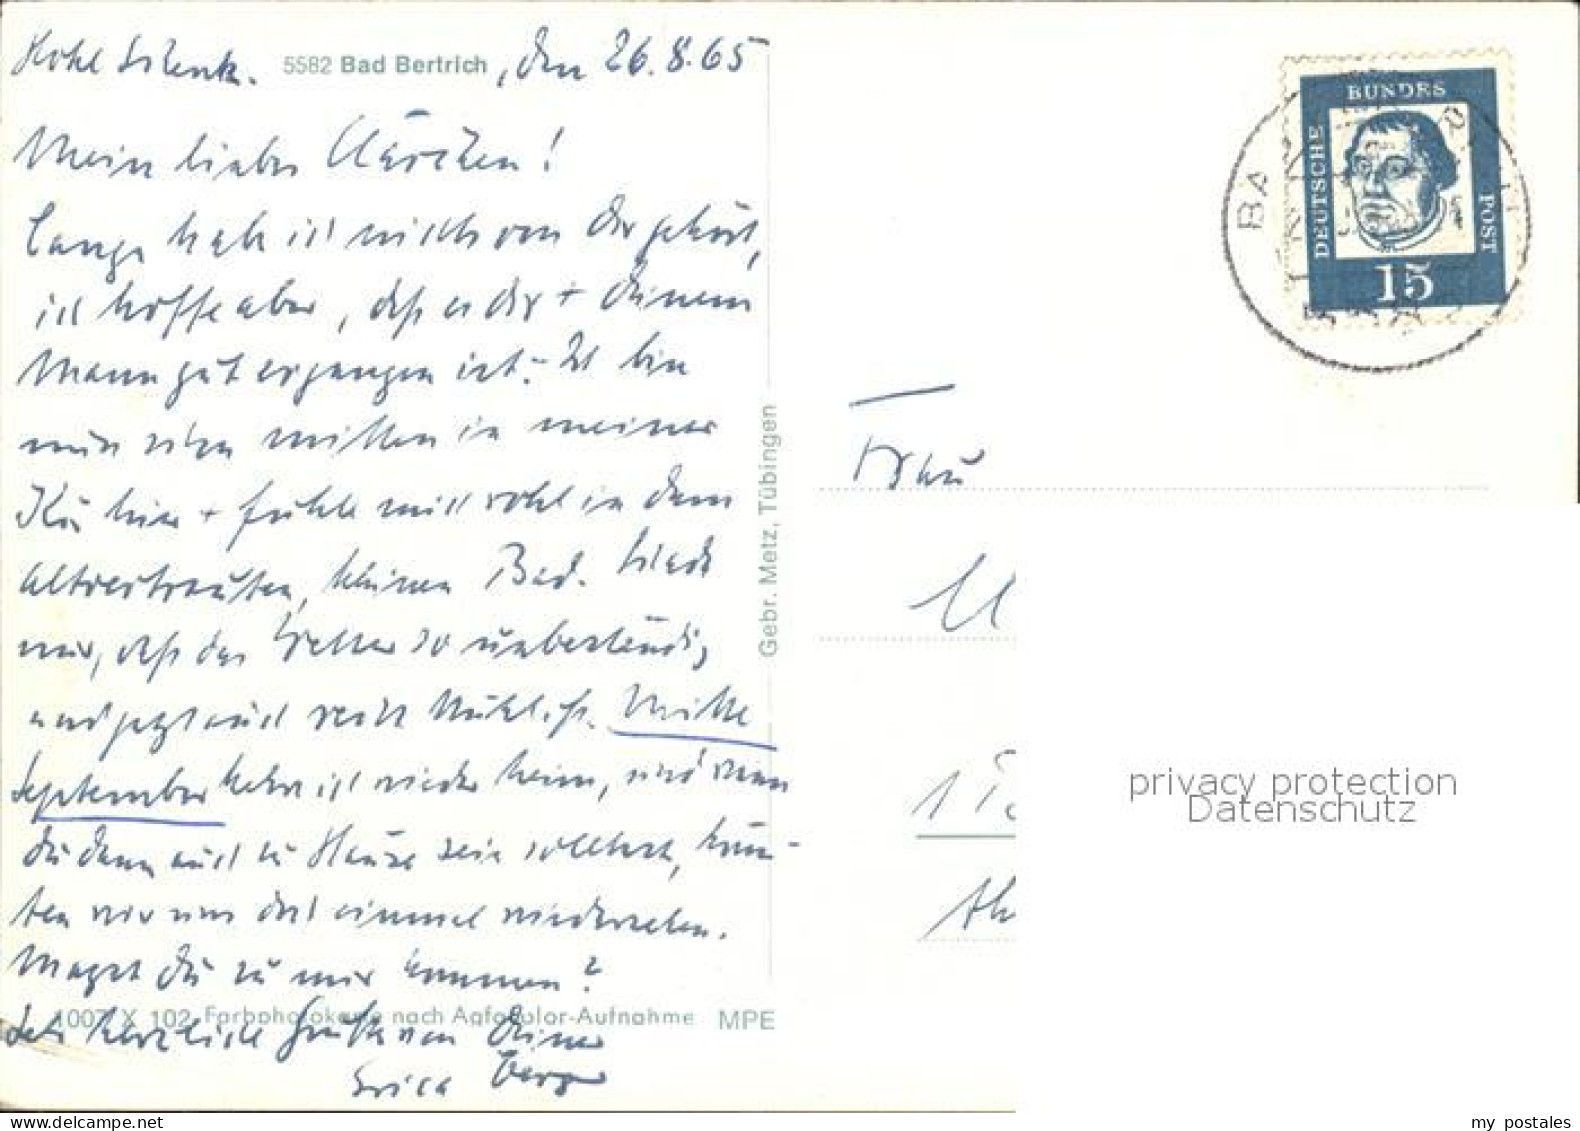 Hotel Schenk. 5582 Bad Bertrich, den 26.8.65
Mein liebes Clärchen!
Lange hab ich nichts von Dir gehört,
ich hoffe aber, daß es Dir + Deinem
Mann gut ergangen ist. - Ich bin
nun schon mitten in meiner
Kur hier + fühle mich wohl in dem
altvertrauten, kleinen Bad. Schade
nur, daß das Wetter so unbeständig
und jetzt auch recht kühl ist. Mitte
September kehre ich wieder heim, und wenn
Du dann auch zu Hause sein solltest, könn-
ten wir uns doch einmal wiedersehen.
Magst Du zu mir kommen?
1007 X 102 Farbphotokarte nach Agfacolor-Aufnahme MPE
Sehr herzliche Grüße von Deiner
Erica
Gebr. Metz, Tübingen
DEUTSCHE BUNDES POST
15
BA
Frau
privacy protection
Datenschutz
my postales